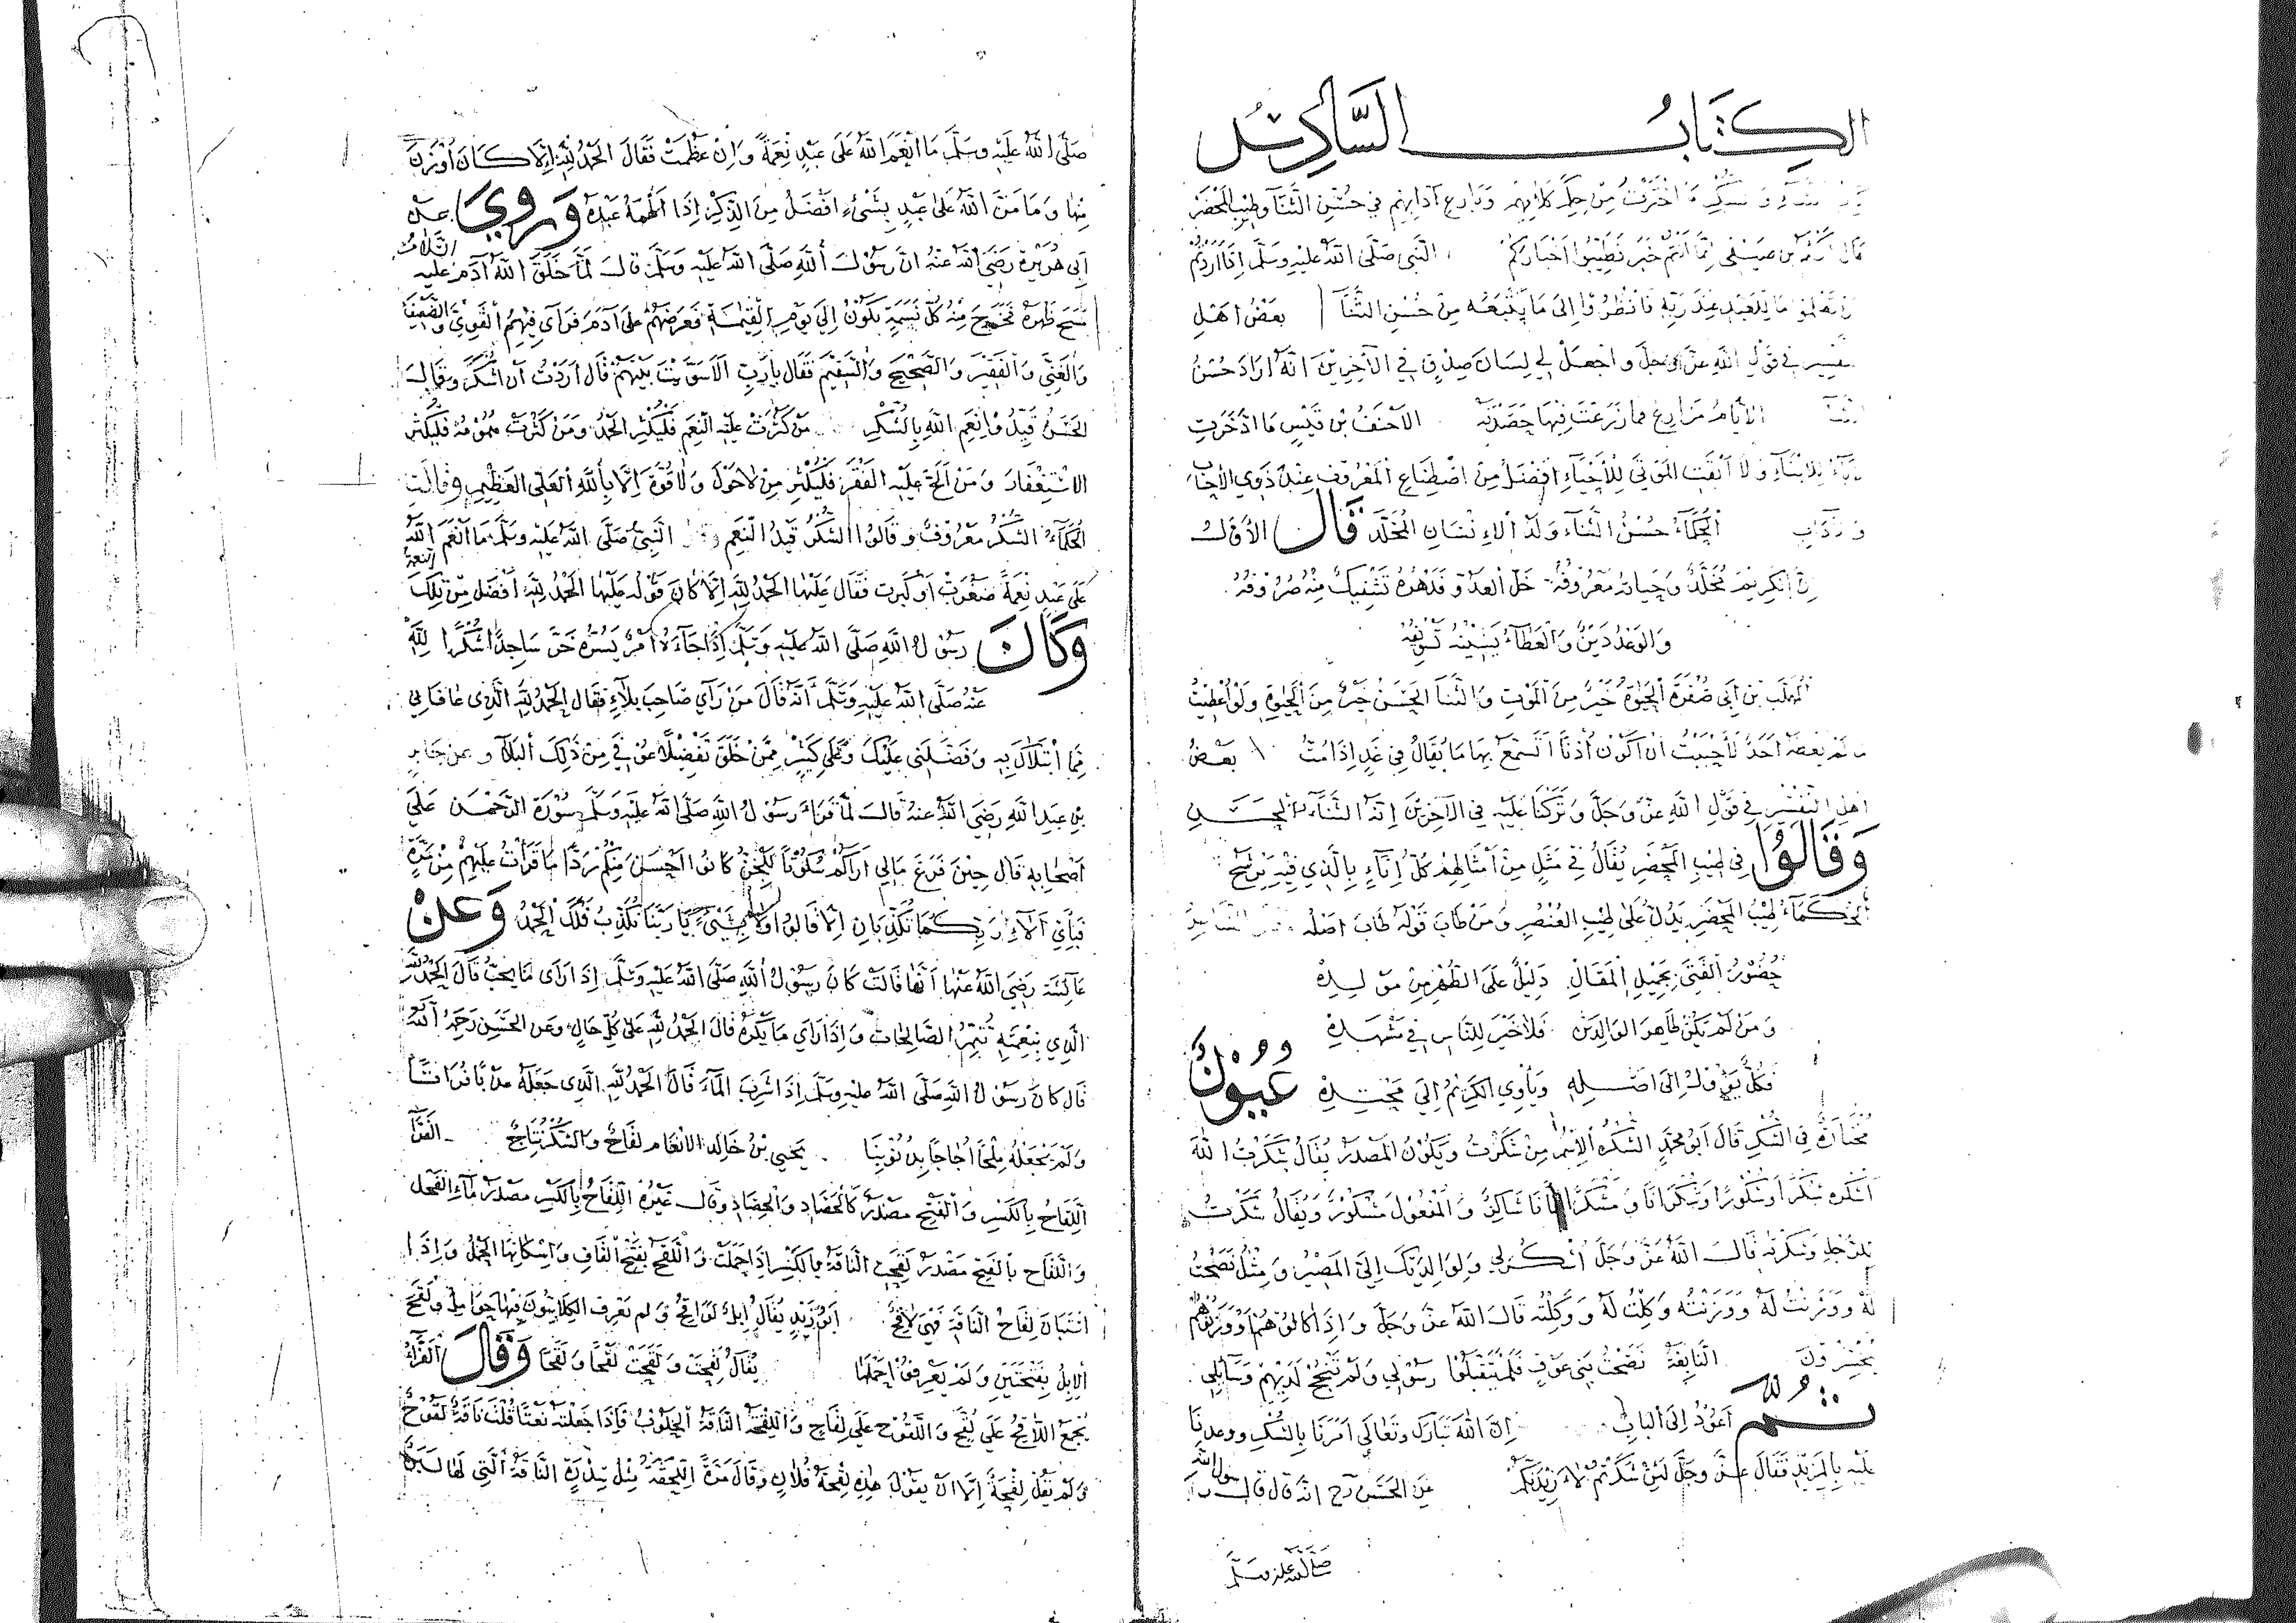 الكتاب السادس
في الثناء والشكر ما اخترت من حكم كلامهم وبارع آدابهم في حسن الثنا وطيب المحضر
قال اكثم بن صيفى انما انتم خبر فطيبوا اخباركم النبي صلى الله عليه وسلم اذا اردتم
ان تعلموا ما للعبد عند ربه فانظروا الى ما يتبعه من حسن الثنآ بعض اهل
التفسير في قول الله عز وجل واجعل لي لسان صدق في الآخرين انه اراد حسن
الثنآ الأيام مزارع فما زرعت فيها حصدته الاحنف بن قيس ما ادخرت
الآباء للابناء ولا ابقت الموتى للأحياء افضل من اصطناع المعروف عند ذوي الاحساب
والآداب الحكمآء حسن الثناء ولد الإنسان المخلد قال الأول
ان الكريم مخلد وحياته معروفه خل العدو فدهره تثنيك منه صروفه
والوعد دين والعطاء يشينه تسويفه
المهلب بن ابي صفرة الحيوة خير من الموت والثنا الحسن خير من الحيوة ولو اعطيت
ما لم يعطه احد لأحببت ان اكون أذنا اتسمع بها ما يقال في غد اذا مت بعض
اهل التفسير في قول الله عز وجل وتركنا عليه في الآخرين انه الثناء الحسن
وقالوا في طيب المحضر يقال في مثل من أمثالهم كل إناء بالذي فيه يرشح
الحكمآء طيب المحضر يدل على طيب العنصر ومن طاب قوله طاب اصله قال الشاعر
حضور الفتى بجميل المقال دليل على الطهر من مولده
ومن لم يكن طاهر الوالدين فلا خير للناس في مشهده
فكل يؤول إلى اصله ويأوي الكريم الى محتده عيون
مختارة في الشكر قال ابو محمد الشكر الاسم من شكرت ويكون المصدر يقال شكرت الله
اشكره شكرا وشكورا وشكرانا ومشكرا فأنا شاكر والمفعول مشكور ويقال شكرت
للرجل وشكرته قال الله عز وجل اشكر لي ولوالديك إلى المصير ومثله نصحت
له ووزنت له ووزنته وكلت له ووكلته قال الله عز وجل واذا كالوهم او وزنوهم
يخسرون النابغة نصحت بني عوف فلم يتقبلوا رسولي ولم تنجح لديهم وسآئلي
ثم اعود الى الباب ان الله تبارك وتعالى امرنا بالشكر ووعدنا
عليه بالمزيد فقال عز وجل لئن شكرتم لأزيدنكم عن الحسن رح انه قال قال رسول الله
صلى الله عليه وسلم
صلى الله عليه وسلم ما انعم الله على عبد نعمة وان عظمت فقال الحمد لله إلا كان أوزن
منها وما من الله على عبد بشئ افضل من الذكر اذا الهمه عبده وروي عن
ابى هريرة رضي الله عنه ان رسول الله صلى الله عليه وسلم قال لما خلق الله آدم عليه السلام
مسح ظهره فخرج منه كل نسمة تكون إلى يوم القيمة فعرضهم على آدم فرآى فيهم القوي والضعيف
والغني والفقير والصحيح والسقيم فقال يا رب الا سويت بينهم قال اردت أن اشكر وقال
الحسن قيدوا نعم الله بالشكر من كثرت عليه النعم فليكثر الحمد ومن كثرت همومه فليكثر
الاستغفار ومن الح عليه الفقر فليكثر من لا حول ولا قوة إلا بالله العلي العظيم وقالت
الحكمآء الشكر معروف وقالوا الشكر قيد النعم وقال النبي صلى الله عليه وسلم ما انعم الله
على عبد نعمة صغرت أو كبرت فقال عليها الحمد لله إلا كان قوله عليها الحمد لله أفضل من تلك النعمة
وكان رسول الله صلى الله عليه وسلم اذا جاءه امر يسره خر ساجدا شكرا لله
عنه صلى الله عليه وسلم أنه قال من رآى صاحب بلآء فقال الحمد لله الذى عافاني
مما ابتلاك به وفضلني عليك وعلى كثير ممن خلق تفضيلا عوفى من ذلك البلآ وعن جابر
بن عبد الله رضي الله عنه قال لما قرأ رسول الله صلى الله عليه وسلم سورة الرحمن على
أصحابه قال حين فرغ مالي اراكم سكوتا للجن كانوا احسن منكم ردا ما قرأت عليهم من مرة
فبأي آلآء ربكما تكذبان إلا قالوا ولا بشئ يا ربنا نكذب فلك الحمد وعن
عآئشة رضي الله عنها انها قالت كان رسول الله صلى الله عليه وسلم اذا رآى ما يحب قال الحمد لله
الذي بنعمته تتم الصالحات واذا رآى ما يكره قال الحمد لله على كل حال وعن الحسن رحمه الله
قال كان رسول الله صلى الله عليه وسلم اذا شرب المآء قال الحمد لله الذى جعله عذبا فراتا
ولم يجعله ملحا أجاجا بذنوبنا يحيى بن خالد الانعام لقاح والشكر نتاج الفرآ
اللقاح بالكسر والفتح مصدر كالحصاد والحصاد وقال غيره اللقاح بالكسر مصدر مآء الفحل
واللقاح بالفتح مصدر لقحت الناقة بالكسر اذا حملت واللقح بفتح القاف واسكانها الحمل واذا
استبان لقاح الناقة فهي لاقح ابو زيد يقال إبل لواقح ولم تعرف الكلابيون فيها حوامل ولقح
الإبل بفتحتين ولم يعرفوا حملها يقال لقحت ولقحت لقحا ولقحا وقال الفرآء
يجمع اللاقح على لقح واللقوح على لقاح واللقحة الناقة الحلوب فإذا جعلته نعتا قلت ناقة لقوح
ولم تقل لقحة إلا ان يقول هذه لقحة فلان وقال مرة اللقحة مثل سدرة الناقة التي لها لبن